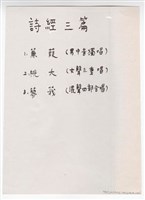 詩經三篇
1. 蒹葭 (男中音獨唱)
2. 桃夭 (女聲三重唱)
3. 蓼莪 (混聲四部合唱)